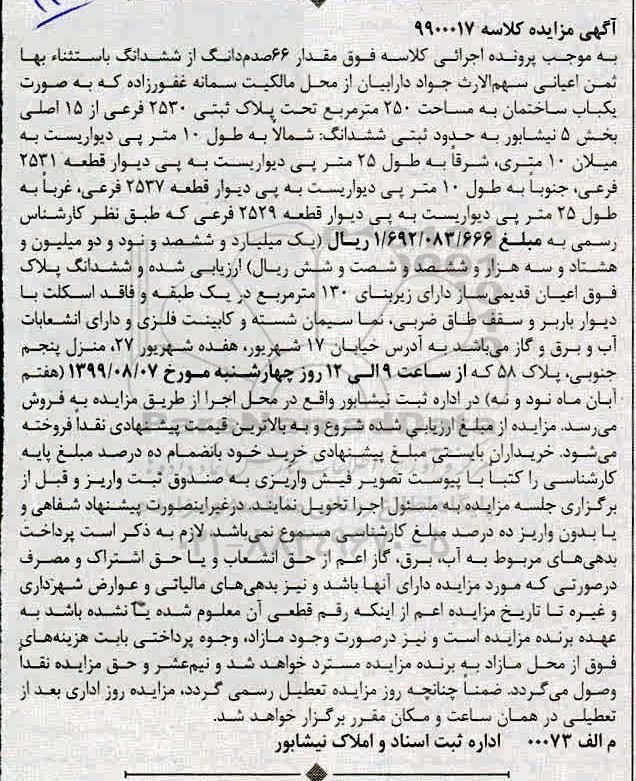 آگهی مزایده کلاسه ۹۹۰۰۰۱۷
به موجب پرونده اجرائی کلاسه فوق مقدار ۶۶صدم‌دانگ از ششدانگ باستثناء بها
ثمن اعیانی سهم‌الارث جواد دارابیان از محل مالکیت سمانه غفورزاده که به صورت
یکباب ساختمان به مساحت ۲۵۰ مترمربع تحت پلاک ثبتی ۲۵۳۰ فرعی از ۱۵ اصلی
بخش ۵ نیشابور به حدود ثبتی ششدانگ: شمالاً به طول ۱۰ متر پی دیواریست به
میلان ۱۰ متری، شرقاً به طول ۲۵ متر پی دیواریست به پی دیوار قطعه ۲۵۳۱
فرعی، جنوباً به طول ۱۰ متر پی دیواریست به پی دیوار قطعه ۲۵۳۷ فرعی، غرباً به
طول ۲۵ متر پی دیواریست به پی دیوار قطعه ۲۵۲۹ فرعی که طبق نظر کارشناس
رسمی به مبلغ ۱/۶۹۲/۰۸۳/۶۶۶ ریال (یک میلیارد و ششصد و نود و دو میلیون و
هشتاد و سه هزار و ششصد و شصت و شش ریال) ارزیابی شده و ششدانگ پلاک
فوق اعیان قدیمی‌ساز دارای زیربنای ۱۳۰ مترمربع در یک طبقه و فاقد اسکلت با
دیوار باربر و سقف طاق ضربی، نما سیمان شسته و کابینت فلزی و دارای انشعابات
آب و برق و گاز می‌باشد به آدرس خیابان ۱۷ شهریور، هفده شهریور ۲۷، منزل پنجم
جنوبی، پلاک ۵۸ که از ساعت ۹ الی ۱۲ روز چهارشنبه مورخ ۱۳۹۹/۰۸/۰۷ (هفتم
آبان ماه نود و نه) در اداره ثبت نیشابور واقع در محل اجرا از طریق مزایده به فروش
می‌رسد. مزایده از مبلغ ارزیابی شده شروع و به بالاترین قیمت پیشنهادی نقداً فروخته
می‌شود. خریداران بایستی مبلغ پیشنهادی خرید خود بانضمام ده درصد مبلغ پایه
کارشناسی را کتباً با پیوست تصویر فیش واریزی به صندوق ثبت واریز و قبل از
برگزاری جلسه مزایده به مسئول اجرا تحویل نمایند. درغیراینصورت پیشنهاد شفاهی و
یا بدون واریز ده درصد مبلغ کارشناسی مسموع نمی‌باشد. لازم به ذکر است پرداخت
بدهی‌های مربوط به آب، برق، گاز اعم از حق انشعاب و یا حق اشتراک و مصرف
درصورتی که مورد مزایده دارای آنها باشد و نیز بدهی‌های مالیاتی و عوارض شهرداری
و غیره تا تاریخ مزایده اعم از اینکه رقم قطعی آن معلوم شده یا نشده باشد به
عهده برنده مزایده است و نیز درصورت وجود مازاد، وجوه پرداختی بابت هزینه‌های
فوق از محل مازاد به برنده مزایده مسترد خواهد شد و نیم‌عشر و حق مزایده نقداً
وصول می‌گردد. ضمناً چنانچه روز مزایده تعطیل رسمی گردد، مزایده روز اداری بعد از
تعطیلی در همان ساعت و مکان مقرر برگزار خواهد شد.
م الف ۰۰۰۷۳ اداره ثبت اسناد و املاک نیشابور